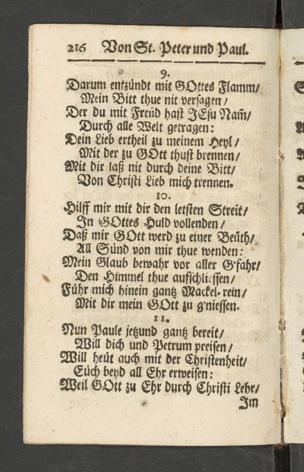 216 Von St. Peter und Paul.
9.
Darum entzündt mit GOttes Flamm/
Mein Bitt thue nit versagen/
Der du mit Freüd hast JEsu Nam̃/
Durch alle Welt getragen:
Dein Lieb ertheil zu meinem Heyl/
Mit der zu GOtt thust brennen/
Mit dir laß nit durch deine Bitt/
Von Christi Lieb mich trennen.
10.
Hilff mir mit dir den letsten Streit/
Jn GOttes Huld vollenden/
Daß mir GOtt werd zu einer Beüth/
All Sünd von mir thue wenden:
Mein Glaub bewahr vor aller G'fahr/
Den Himmel thue aufschliessen/
Führ mich hinein gantz Mackel-rein/
Mit dir mein GOtt zu g'niessen.
11.
Nun Paule jetzund gantz bereit/
Will dich und Petrum preisen/
Will heüt auch mit der Christenheit/
Eüch beyd all Ehr erweisen:
Weil GOtt zu Ehr durch Christi Lehr/
Jm